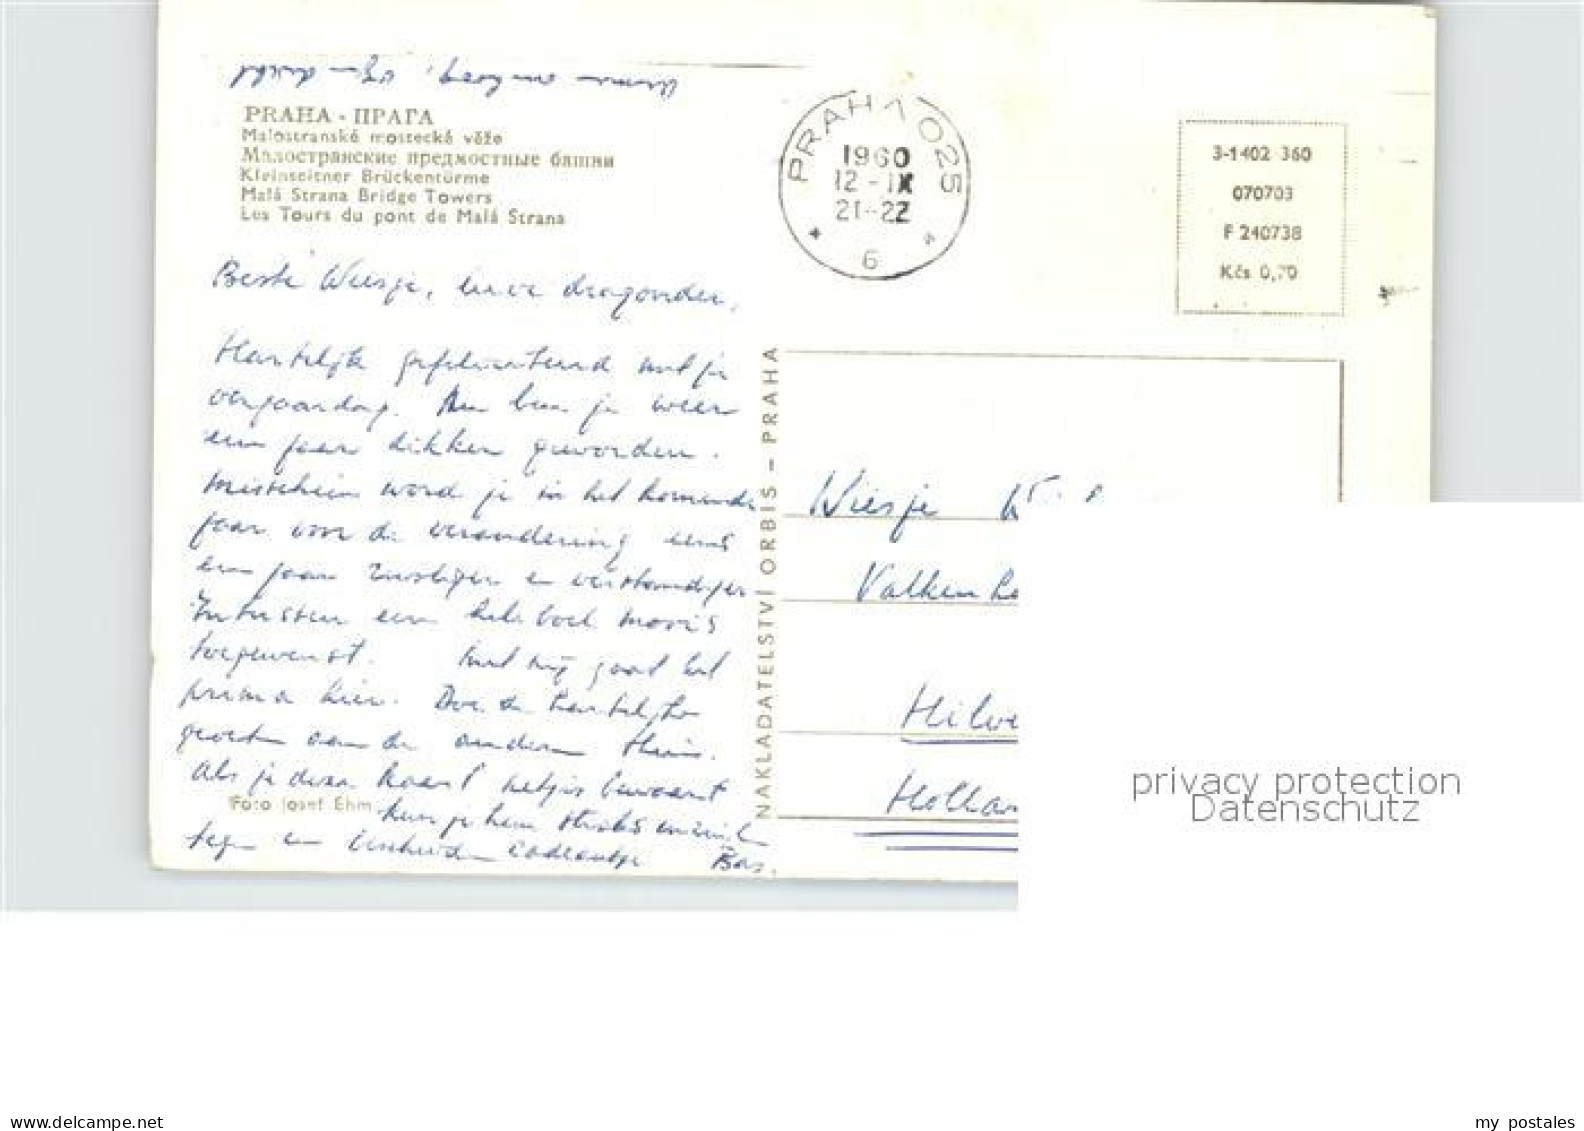 PRAHA - ПРАГА
Malostranské mostecké věže
Малостранские предмостные башни
Kleinseitner Brückentürme
Malá Strana Bridge Towers
Les Tours du pont de Malá Strana
PRAHA 025
1960
12-IX
21-22
6
3-1402 360
070703
F 240738
Kčs 0,70
Beste Wiesje, lieve dragonder,
Hartelijk gefeliciteerd met je
verjaardag. Nu ben je weer
een jaar dikker geworden.
Misschien word je in het komende
jaar voor de verandering eens
een jaar rustiger en verstandiger
Intussen een hele boel moois
toegewenst. Met mij gaat het
prima hier. Doe de hartelijke
groeten aan de anderen thuis.
Als je deze kaart netjes bewaart
kun je hem straks
tegen een cadeautje Bas.
Foto Josef Ehm
NAKLADATELSTVÍ ORBIS - PRAHA
Wiesje
Valken
Hilve
Hollan
privacy protection
Datenschutz
www.delcampe.net
my postales